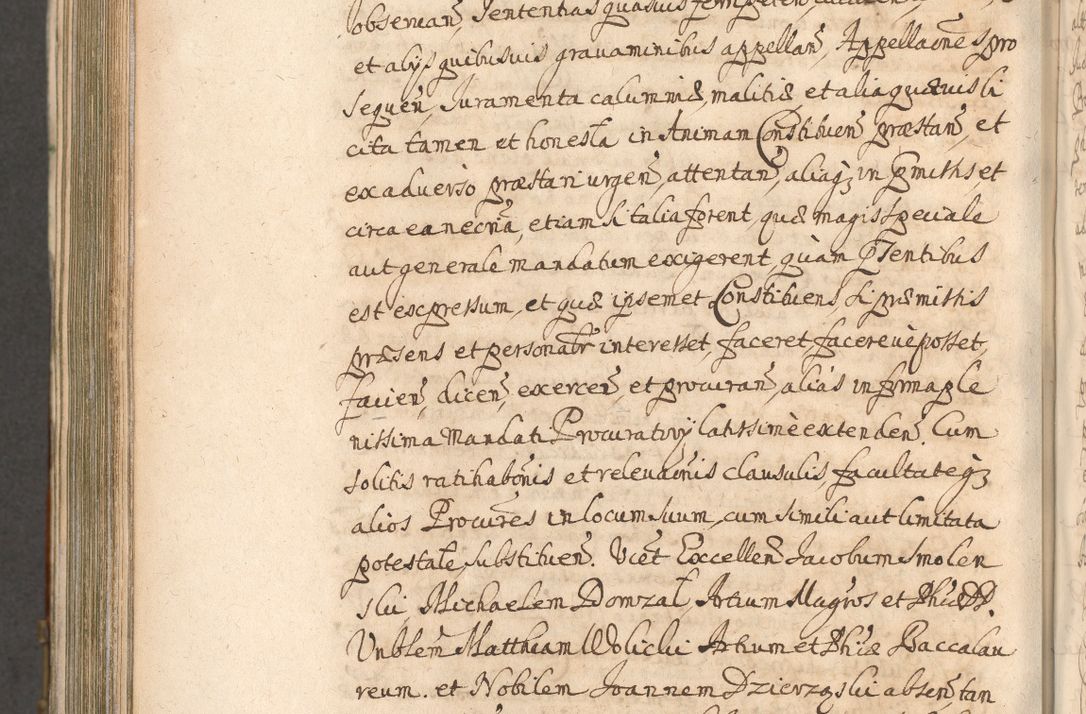 observan̄, Sententias quasvis
et alijs quibusuis grauaminibus appellan̄, Appellaōnes pro
sequen̄, Iuramenta calumniæ, malitiæ, et alia quæuis li
cita tamen et honesta in Animam Constituen̄ præstan̄, et
ex aduerso præstari urgen̄, attentan̄, aliaqz in præmissis, et
circa ea necria, etiam si talia forent, quæ magis speciale
aut generale mandatum exigerent quàm pn̄tentibus
est expressum, et quæ ipsemet Constituens, si præmissis
præsens et personalr̄ interesset, faceret, facereuè posset,
facien̄, dicen̄, exercen̄, et procuran̄, aliàs in forma ple
nissima Mandati Procuratorij latissimè extenden̄. Cum
solitis ratihabōnis et releuaōnis clausulis, facultateqz
alios Procūres in locum suum, cum simili aut limitata
potestate, substituen̄. Vics̄t Excellen̄ Jacobum Smolen
ski, Michaelem Domzal Artium Magr̄os et Phiæ DD.
Vnblem̄ Matthiam Wolicki Artium et Phiæ Baccalau
reum. et Nobilem Joannem Dzierzęski absen̄ tan